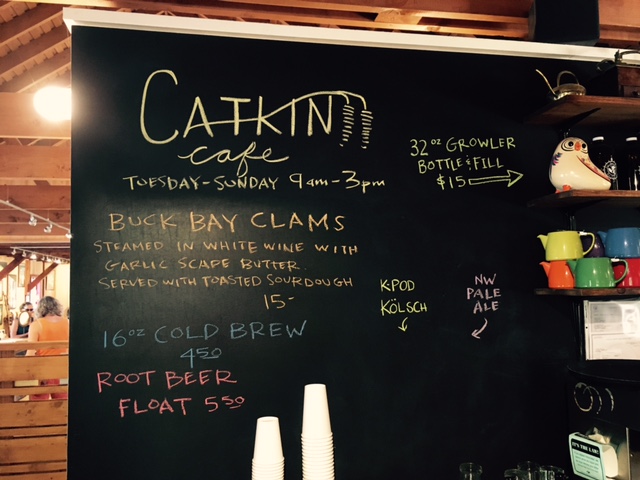 CATKIN
cafe
TUESDAY-SUNDAY 9am-3pm
BUCK BAY CLAMS
STEAMED IN WHITE WINE WITH
GARLIC SCAPE BUTTER
SERVED WITH TOASTED SOURDOUGH
15-
16oz COLD BREW
4.50
ROOT BEER
FLOAT 5.50
32oz GROWLER
BOTTLE & FILL
$15
K-POD
KÖLSCH
NW
PALE
ALE
IT'S THE LAW!